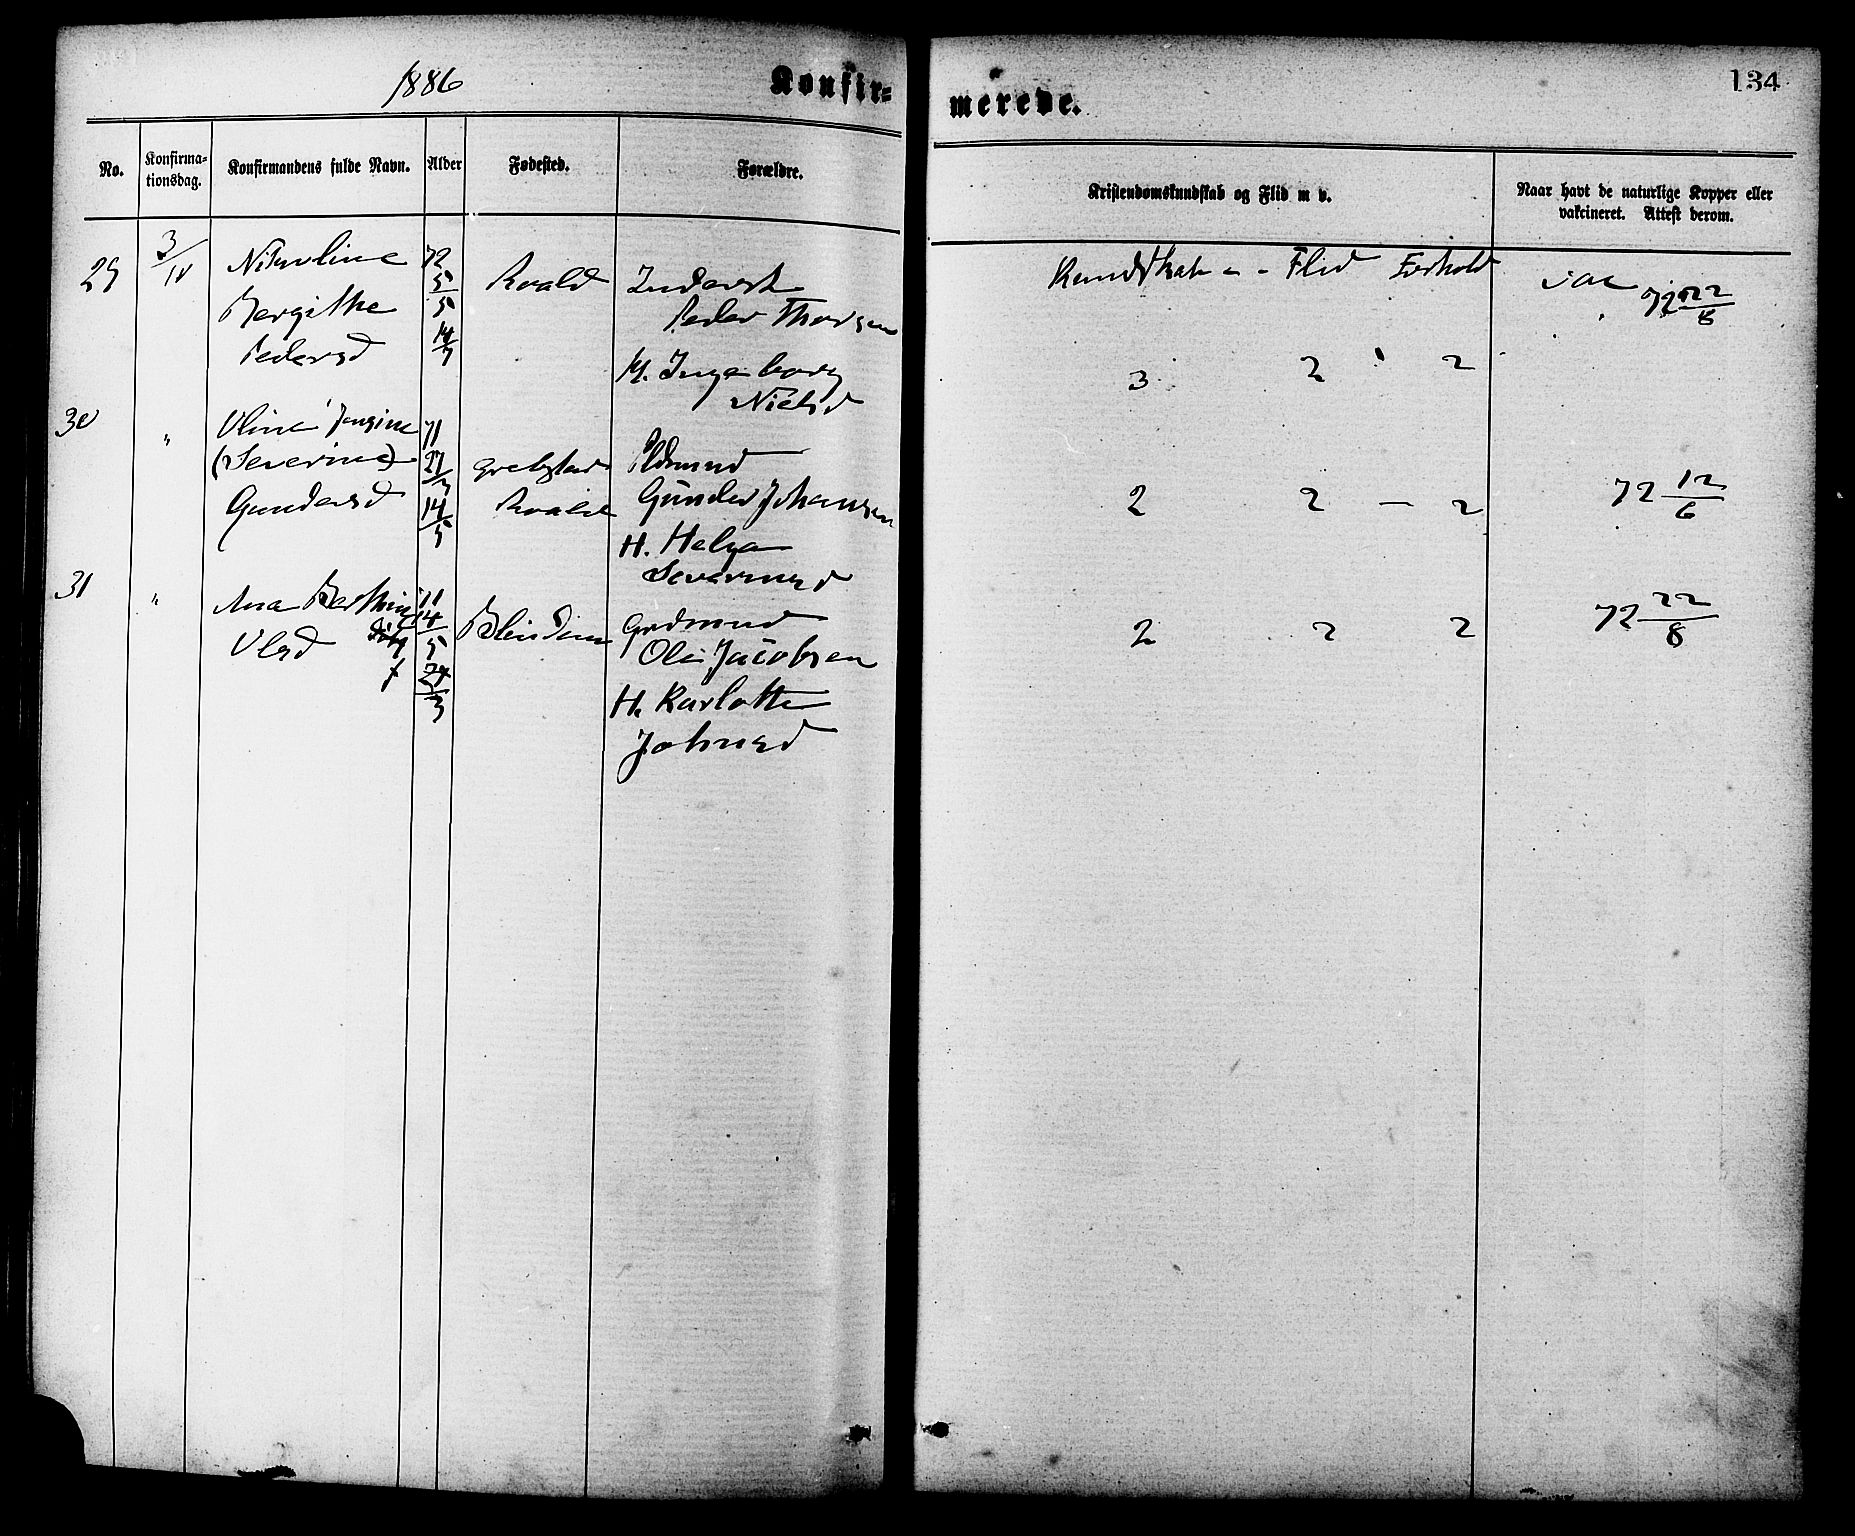 1886
Konfir-
merede.
134
No.
Konfirma-
tionsdag.
Konfirmandens fulde Navn.
Alder
Fødested.
Forældre.
Kristendomskundskab og Flid m v.
Naar havt de naturlige Kopper eller
vakcineret. Attest derom.
29
3/10
Nikoline
Bergithe
Pedersd
72
5/5
14/5
Roald
Inderst
Peder Thorsen
H. Ingeborg
Nielsd
Kundskab - - Flid Forhold
vac
72 22/8
3 2 2
30
"
Oline Jensine
(Severine)
Gundersd
71
27/3
14/5
Roald
Gunder Johansen
H. Helga
2 2 — 2
72 12/6
31
"
Ana Berthine
Olsd
71
14/5
Blindeim
Grdmnd
Ole Jacobsen
H. Karlotte
Johnsd
2 2 2
72 22/8